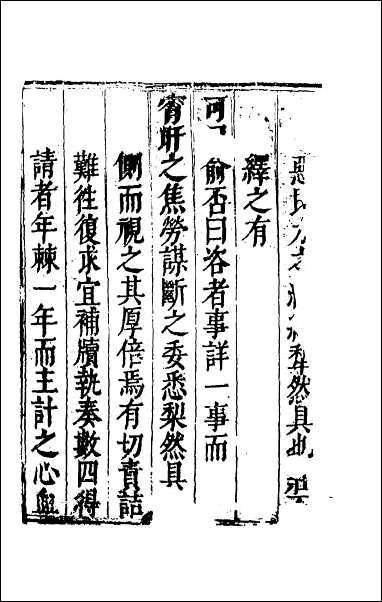 然具也
繹之有
可 俞否曰咨者事詳一事而
宵旰之焦勞謀斷之委悉梨然具
側而視之其厚倍焉有切責詰
難徃復求宜補牘執奏數四得
請者年棘一年而主計之心血